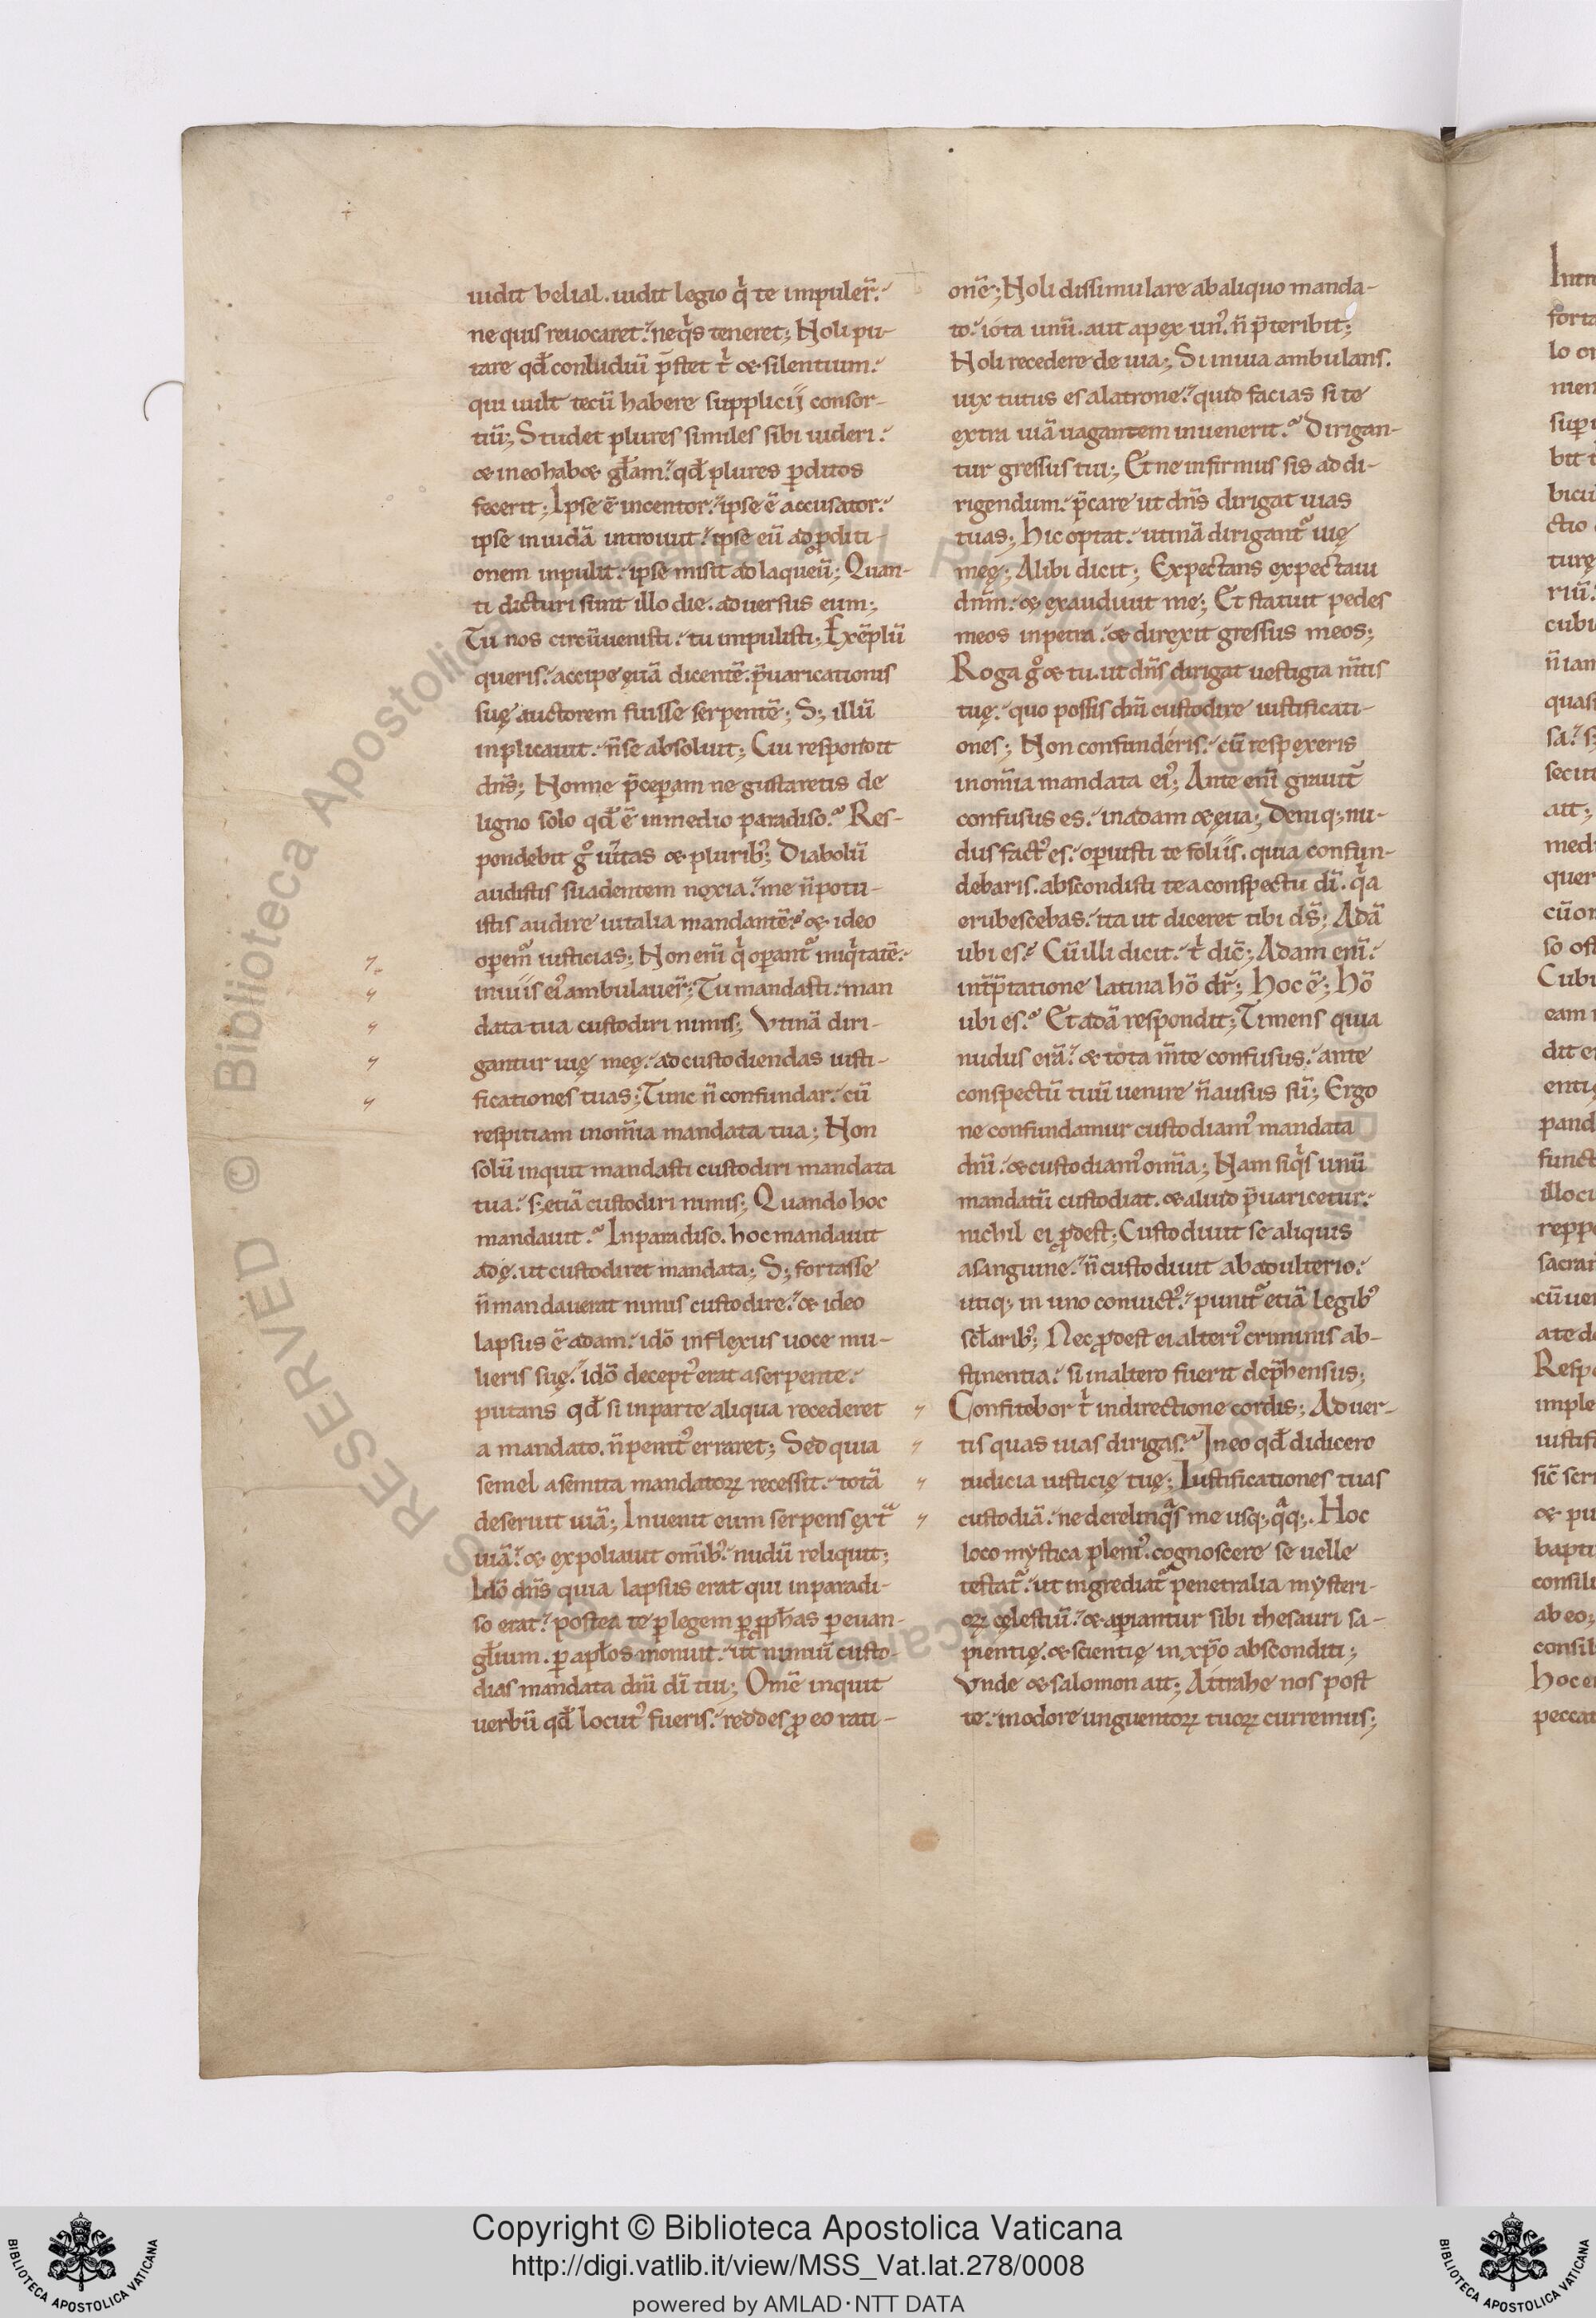 uidit belial. uidit legio q̍ te impuler̄.
ne quis reuocaret. neq̍s teneret; Noli pu-
tare qđ conludiū p̄stet t̍ & silentium.
qui uult tecū habere supplicij consor-
tiū; Studet plures similes sibi uideri.
& in eo hab& gl̄am. qđ plures ꝑditos
fecerit; Ipse ē incentor. ipse ē accusator.
ipse in iudā introiuit. ipse eū ad ꝑditi-
onem inpulit. ipse misit ad laqueū; Quan-
ti dicturi sunt illo die. aduersus eum;
Tu nos circūuenisti. tu impulisti; Exēplū
queris. accipe ęuā dicentē. p̄uaricationis
suę auctorem fuisse serpentē; S; illū
inplicauit. n̄ se absoluit; Cui respondit
dn̄s; Nonne p̄ceperam ne gustaretis de
ligno solo qđ ē in medio paradiso. Res-
pondebit g̊ uītas & plurib᾽; Diabolū
audistis suadentem noxia. me n̄ potu-
istis audire uitalia mandantē. & ideo
oꝑem᾽ iusticias; Non enī q̍ oꝑant᾽ iniq̍tatē.
in uiis ei᾽ ambulauer̄; Tu mandasti. man
data tua custodiri nimis; Vtinā diri-
gantur uię meę. ad custodiendas iusti-
ficationes tuas; Tunc n̄ confundar. cū
respitiam in om̄ia mandata tua; Non
solū inquit mandasti custodiri mandata
tua. s; etiā custodiri nimis; Quando hoc
mandauit. In paradiso. hoc mandauit
adę. ut custodiret mandata; S; fortasse
n̄ mandauerat nimis custodire. & ideo
lapsus ē adam. idō inflexus uoce mu-
lieris suę. idō decept᾽ erat a serpente.
putans qđ si in parte aliqua recederet
a mandato. n̄ penit᾽ erraret; Sed quia
semel a semita mandatoꝝ recessit. totā
deseruit uiā; Inuenit eum serpens ext̄
uiā. & expoliauit om̄ib᾽. nudū reliquit;
Idō dn̄s quia lapsus erat qui in paradi-
so erat. postea te ꝑ legem ꝑ ꝓph̄as ꝑ euan-
gl̄ium. ꝑ apl̄os monuit. ut nimiū custo-
dias mandata dn̄i dī tui; Om̄e inquit
uerbū qđ locut᾽ fueris. reddes ꝓ eo rati-
onē; Noli dissimulare ab aliquo manda-
to. iota unū. aut apex un᾽. n̄ p̄teribit;
Noli recedere de uia; Si in uia ambulans.
uix tutus es a latrone. quid facias si te
extra uiā uagantem inuenerit. Dirigan-
tur gressus tui; Et ne infirmus sis ad di-
rigendum. p̄care ut dn̄s dirigat uias
tuas; Hic optat. utinā dirigant᾽ uię
meę; Alibi dicit; Expectans expectaui
dn̄m. & exaudiuit me; Et statuit pedes
meos in petra. & direxit gressus meos;
Roga g̊ & tu. ut dn̄s dirigat uestigia m̄tis
tuę. quo possis dn̄i custodire iustificati-
ones; Non confunderis. cū respexeris
in om̄ia mandata ei᾽; Ante enī grauit᾽
confusus es. in adam & ęua; Deniq; nu-
dus fact᾽ es. oꝑuisti te foliis. quia confun-
debaris. abscondisti te a conspectu dī. q̍a
erubescebas. ita ut diceret tibi d̄s; Adā
ubi es. Cū illi dicit. t̍ dic̄; Adam enī.
int̄p̄tatione latina hō dr̄; Hoc ē; Hō
ubi es. Et adā respondit; Timens quia
nudus erā. & tota m̄te confusus. ante
conspectū tuū uenire n̄ ausus sū; Ergo
ne confundamur custodiam᾽ mandata
dn̄i. & custodiam᾽ om̄ia; Nam siq̍s unū
mandatū custodiat. & aliud p̄uaricetur.
nichil ei ꝓdest; Custodiuit se aliquis
a sanguine. n̄ custodiuit ab adulterio.
utiq; in uno conuict᾽. punit᾽ etiā legib᾽
scl̄arib᾽; Nec ꝓdest ei alteri᾽ criminis ab-
stinentia. si in altero fuerit dep̄hensus;
Confitebor t̍ in directione cordis; Aduer-
tis quas uias dirigas. In eo qđ didicero
iudicia iusticię tuę; Iustificationes tuas
custodiā. ne derelinq̄s me usq; q̄q;. Hoc
loco mystica plenī. cognoscere se uelle
testat᾽. ut ingrediat᾽ penetralia mysteri-
oꝝ cęlestiū. & aꝑiantur sibi thesauri sa-
pientię. & scientię in xp̄o absconditi;
Vnde & salomon ait; Attrahe nos post
te. in odore unguentoꝝ tuoꝝ curremus;
Copyright © Biblioteca Apostolica Vaticana
http://digi.vatlib.it/view/MSS_Vat.lat.278/0008
powered by AMLAD·NTT DATA